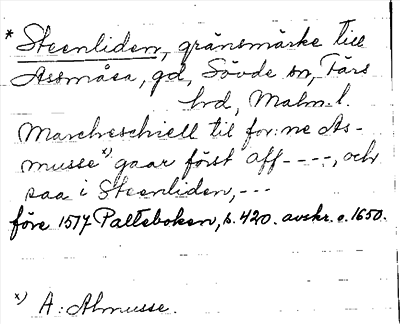 * Steenliden, gränsmärke till
Assmåsa, gd, Sövde sn, Färs
hd, Malm. l.
Marcheschiell til for:ne As-
musse x) gaar först aff ----, och
saa i Steenliden, ---
före 1577 Palteboken, s. 420. avskr. o. 1650.
x) A: Almusse.